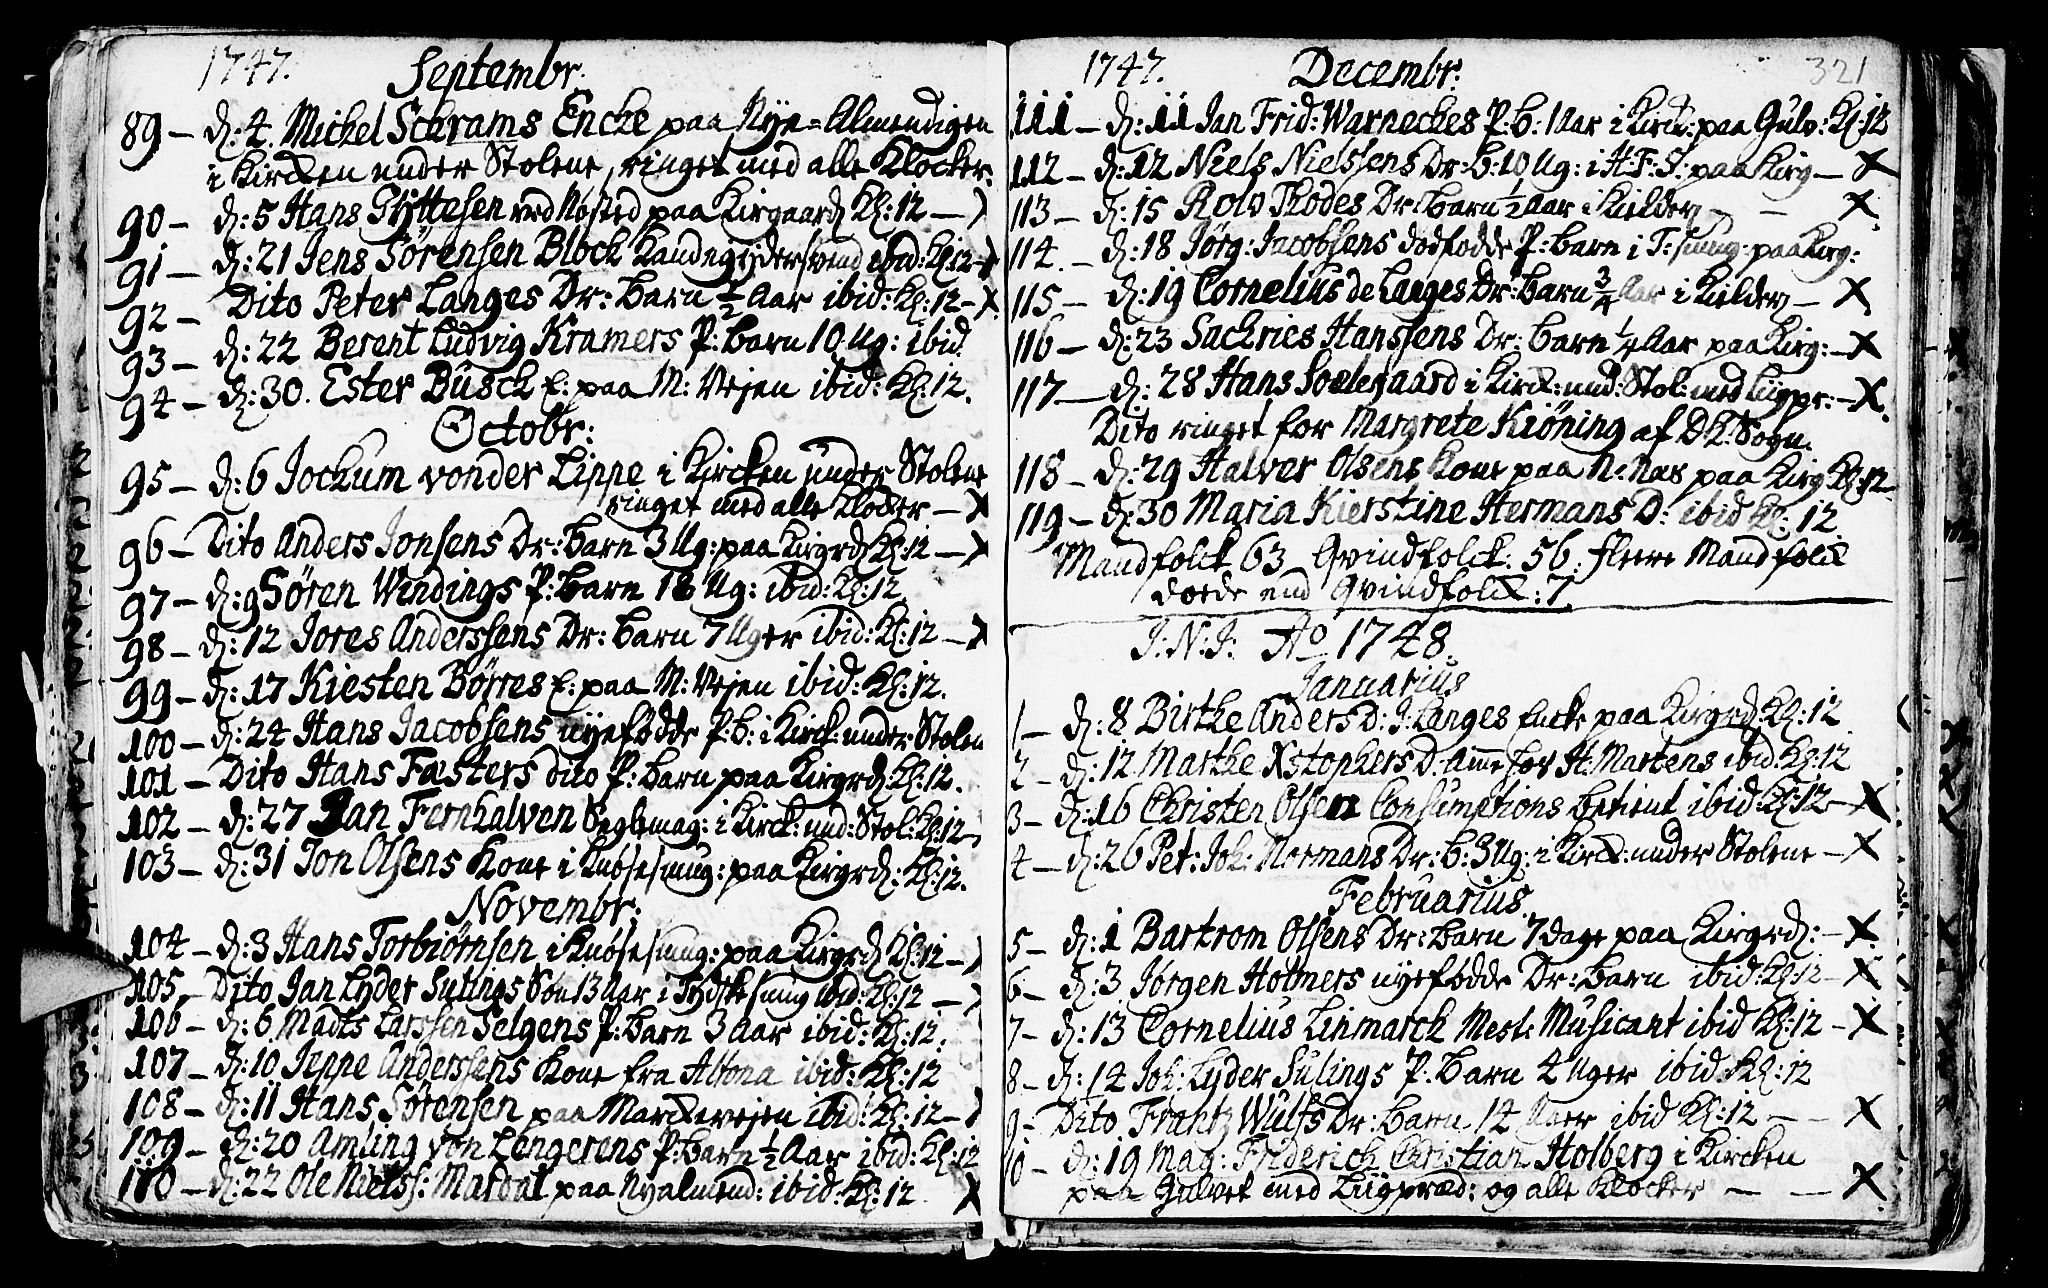 1747. Septembr.
89 – d: 4. Michel Schrams Encke paa Nye=Almendigen
i Kircken under Stolene, ringet med alle Klocker.
90 – d: 5 Hans Gyttesen ved Nøsted paa Kirgaard Kl: 12 – X
91 – d: 21 Jens Sørensen Block Kandegydersvend ibid: Kl: 12 – X
92 – Dito Peter Langes Dr: barn ½ Aar ibid: Kl: 12 – X
93 – d: 22 Berent Ludvig Kramers P: barn 10 Ug: ibid
94 – d: 30. Ester Busch f: paa M: Vejen ibid: Kl: 12.
Octobr:
95 – d: 6 Jochum vonder Lippe i Kircken under Stolene
ringet med alle Klocker – X
96 – Dito Anders Jonsens Dr: barn 3 Ug: paa Kirgrd Kl: 12 – X
97 – d: 9 Søren Windings P: barn 18 Ug: ibid: Kl: 12
98 – d: 12 Jores Anderssens Dr: barn 7 Uger ibid: Kl: 12 – X
99 – d: 17 Kiesten Børres f: paa M: Vejen ibid: Kl: 12.
100 – d: 24 Hans Jacobsens nyefødde P: b: i Kirck: under Stolen
101 – Dito Hans Fasters dito P: barn paa Kirgrd: Kl: 12.
102 – d: 27 Jan Fernhalven Seglemag: i Kirck: und: Stol: Kl: 12
103 – d: 31 Jon Olsens Kone i Knøsesmug: paa Kirgrd: Kl: 12.
Novembr:
104 – d: 3 Hans Torbiørnsen i Knøsesmug: paa Kirgrd Kl: 12 – X
105 – Dito Jan Lyder Sulings Søn 13 Aar i Tydskesmug ibid: Kl: 12 – X
106 – d: 6. Madts Larssen Selgens P: barn 3 Aar ibid: Kl: 12.
107 – d: 10 Jeppe Anderssens Kone fra Altona ibid: Kl: 12
108 – d: 11 Hans Sørensen paa Marckevejen ibid: Kl: 12 – X
109 – d: 20 Amling von Lengerens P: barn ½ Aar ibid: Kl: 12
110 – d: 22 Ole Nielss: Mardal paa Nyalmend: ibid: Kl: 12 X
1747. Decembr. 321
111 – d: 11 Jan Frid: Warneckes P: b: 1 Aar i Kirck: paa Gulv: Kl: 12
112 – d: 12 Niels Nielssens Dr: b: 10 Ug: i H: F: S: paa Kirg – X
113 – d: 15 Rolv Thodes Dr: barn ½ Aar i Kielder – – X
114. – d: 18 Jørg: Jacobsens dødfødde P: barn i T: smug: paa Kirg:
115 – d: 19 Cornelius de Langes Dr: barn ¾ Aar i Kielder – X
116 – d: 23 Sachries Hanssens Dr: barn ¼ Aar paa Kirg: – X
117 – d: 28 Hans Soelegaard i Kirck: und: Stol: med Liigpr: – X.
Dito ringet for Margrete Kiøning af DK: Sogn.
118 – d: 29 Halver Olsens Kone paa N: Nas paa Kirg Kl: 12.
119 – d: 30 Maria Kierstine Hermans D: ibid Kl: 12
Mandfolck 63 Qvindfolck: 56. fleere Mandfolck
døede end Qvindfolck: 7
J: N: J: Ao 1748.
Januarius
1 – d: 8 Birthe Anders D: J: Langes Encke paa Kirgrd: Kl: 12
2 – d: 12 Marthe Xstophers D: Amme for H: Martens ibid. Kl: 12
3 – d: 16 Christen Olsen Consumptions betient ibid: Kl: 12 – X
4 – d: 26 Pet: Joh: Normans Dr: b: 3 Ug: i Kirck: under Stolene – X
Februarius.
5 – d: 1 Bartrom Olsens Dr: barn 7 dage paa Kirgrd: – X.
6 – d: 3 Jørgen Holmers nyefødde Dr: barn ibid: Kl: 12 – X
7 – d: 13 Cornelius Linmarck Mest: Musicant ibid Kl: 12 – X
8 – d: 14 Joh: Lyder Sulings P: barn 4 Uger ibid: Kl: 12
9 – Dito Frantz Wulfs Dr: barn 14 Aar ibid Kl: 12 – – X
10 – d: 19 Mag: Friderich Christian Holberg i Kircken
paa Gulvet med Liigpræd: og alle Klocker – – X